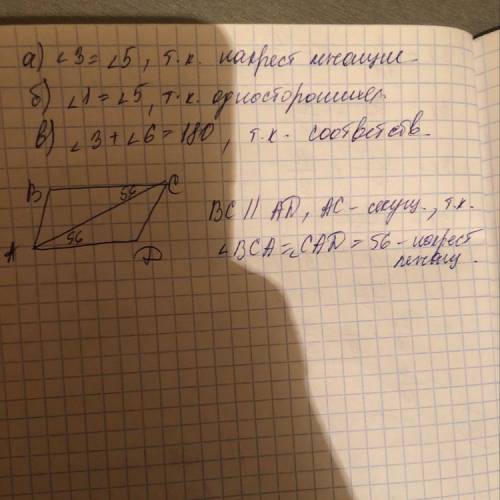 а) ∠3=∠5, т.к. накрест лежащие.
б) ∠1=∠5, т.к. односторонние.
в) ∠3+∠6=180, т.к. соответств.
B 56 C
A 56 D
BC || AD, AC - секущ., т.к.
∠BCA=∠CAD=56 - накрест
лежащ.